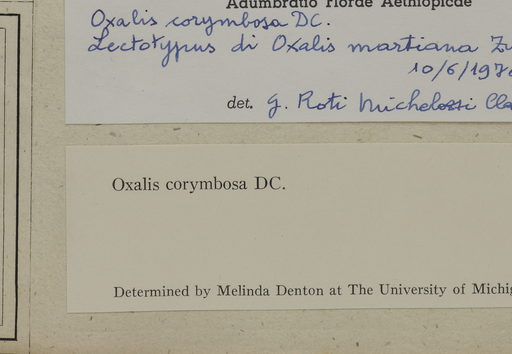 Adumbratio Florae Aethiopicae
Oxalis corymbosa DC.
Lectotypus di Oxalis martiana Zu
10/6/197
det. G. Roti Michelozzi Cla
Oxalis corymbosa DC.
Determined by Melinda Denton at The University of Michig